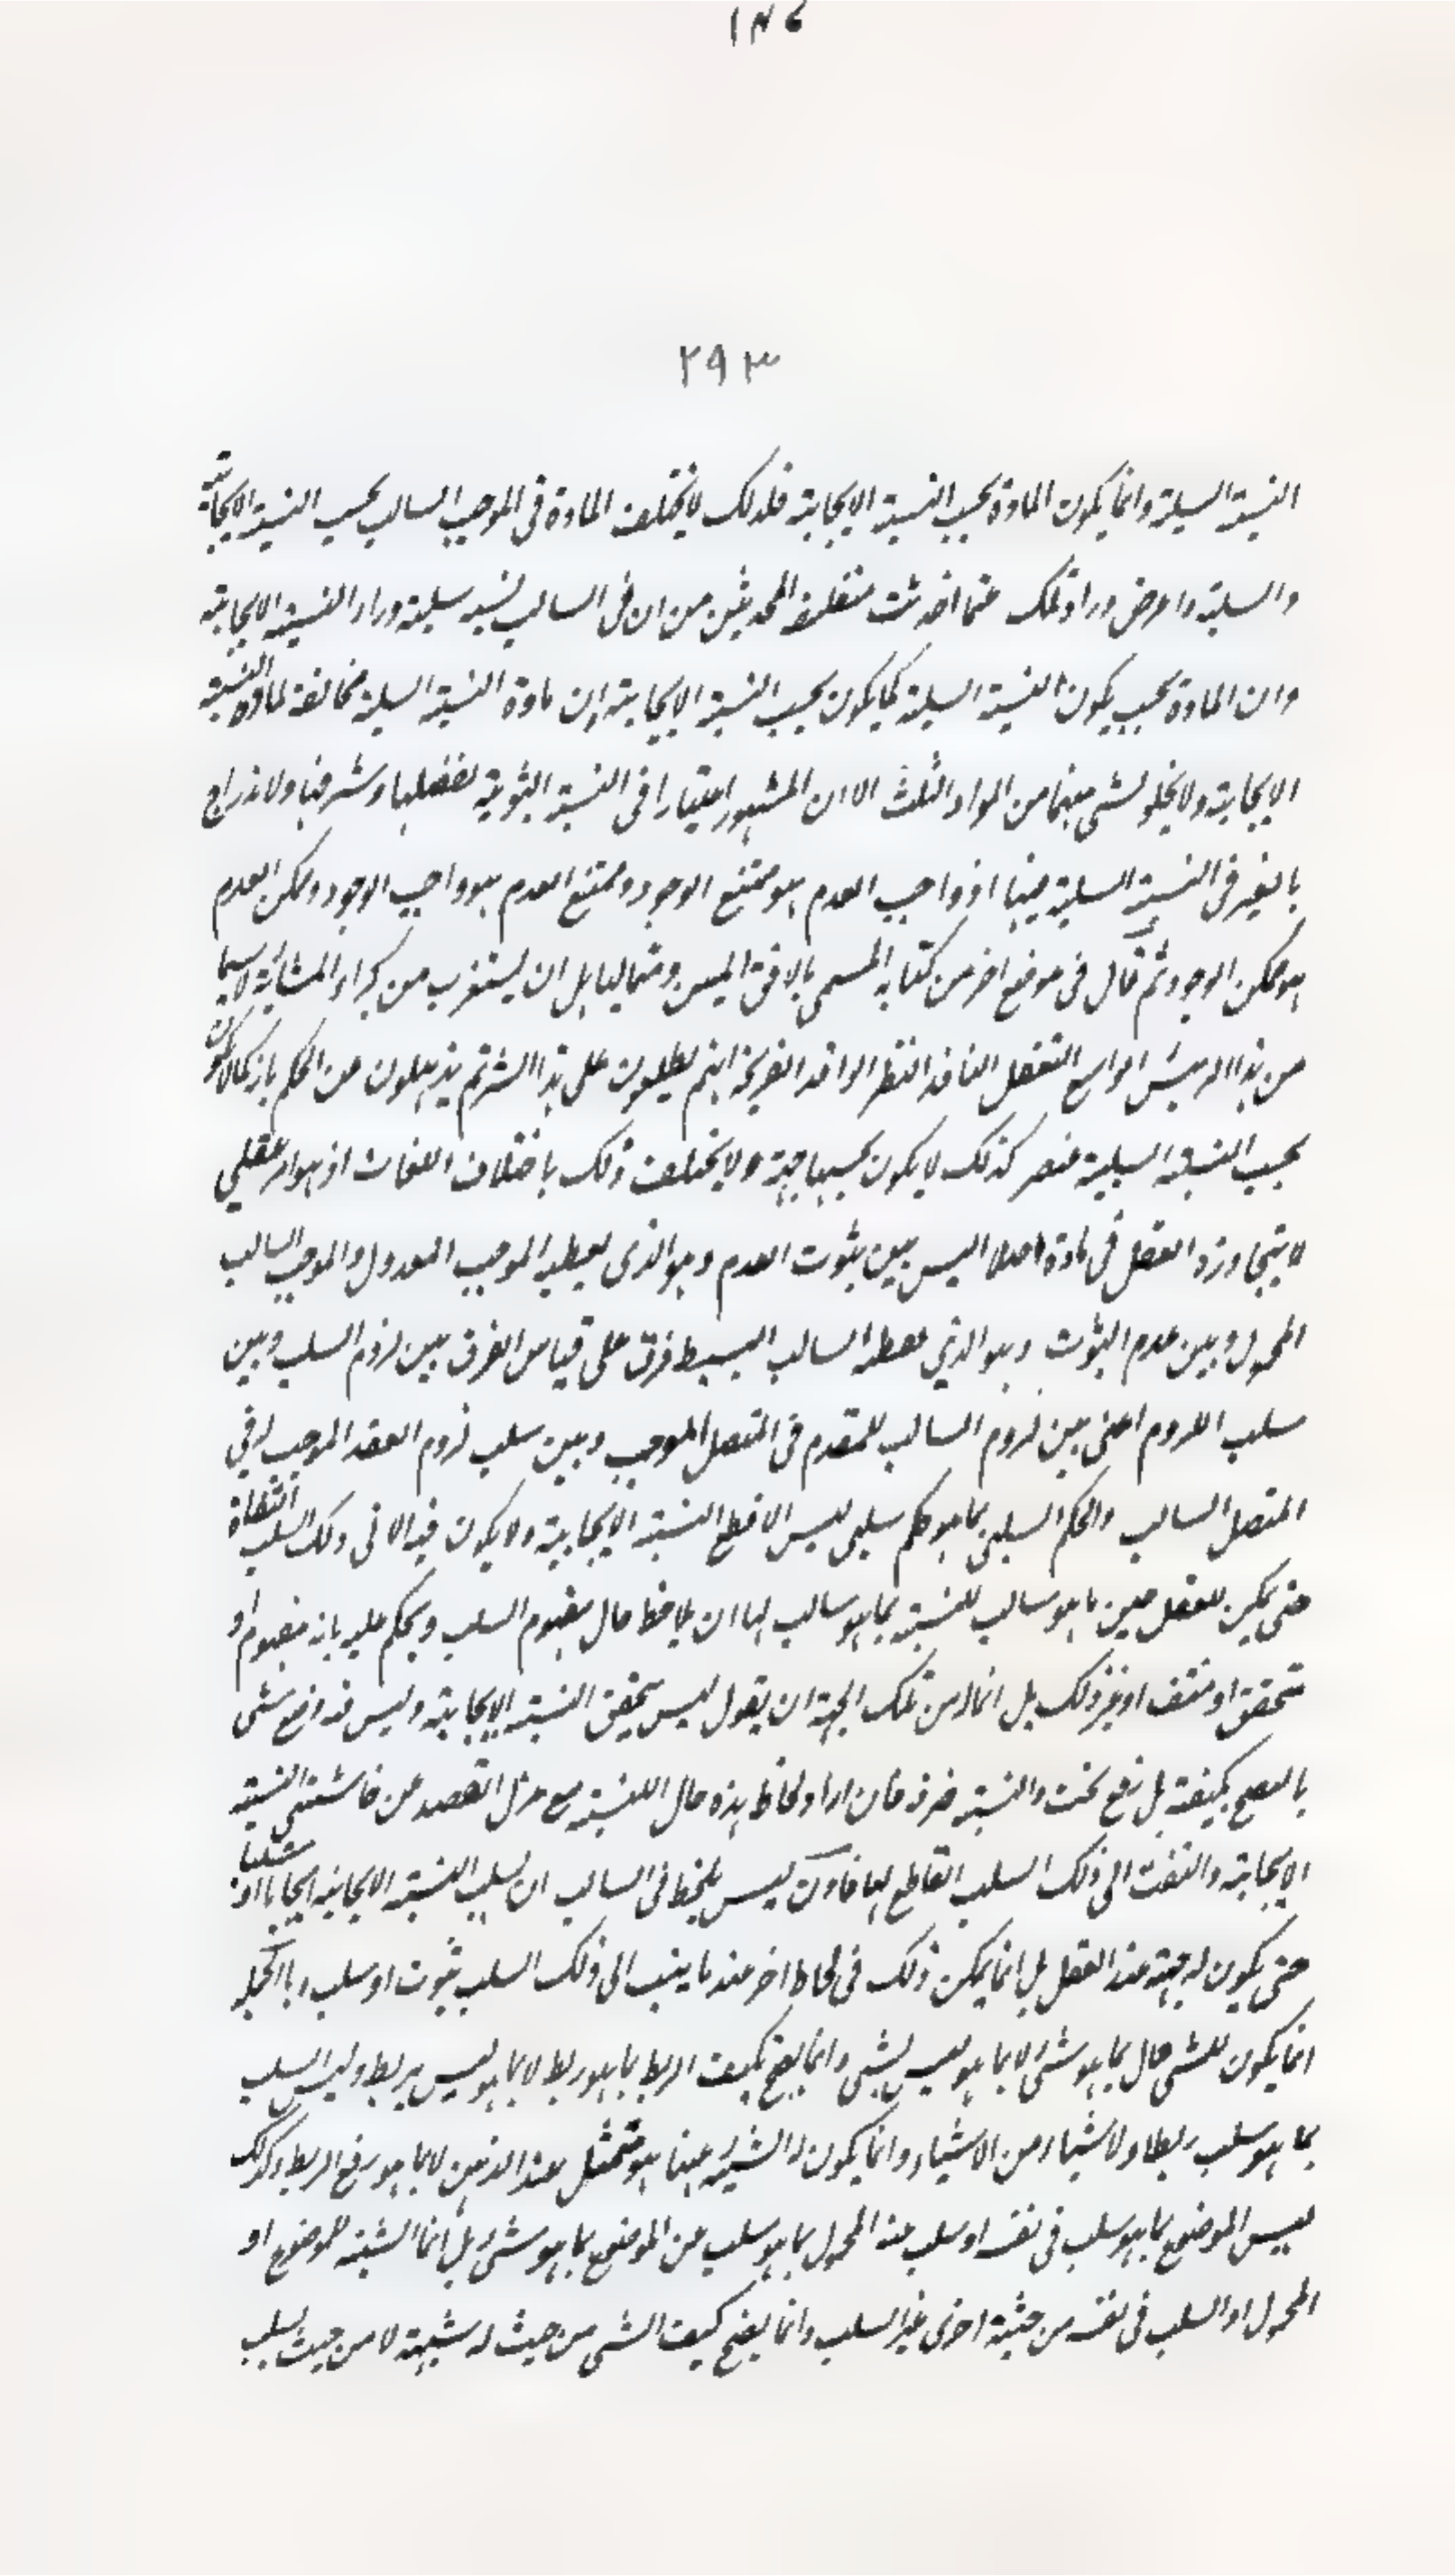 ١٣٤
٢٩٣
النسبة السلبية وانما يكون المادة بحسب النسبة الايجابية فلذلك لا يختلف المادة فى الموجب السالب بحسب النسبة الايجابية
والسلبية واعرض وراء ذلك عما احدثت متفلسفة المحدثين من ان فى السالب نسبة سلبية وراء النسبة الايجابية
وان المادة بحسب يكون النسبة السلبية كما يكون بحسب النسبة الايجابية ان مادة النسبة السلبية مخالفة لمادة النسبة
الايجابية ولا يخلو شى منهما من المواد الثلث الا ان المشهور اعتبارا فى النسبة الثبوتية لفضلها وشرفها ولاندراج
ما يعتبر فى النسبة السلبية فيها اذ واجب العدم هو ممتنع الوجود وممتنع العدم هو واجب الوجود وممكن العدم
هو ممكن الوجود ثم قال فى موضع اخر من كتابه المسمى بالافق المبين ومما ليا بل ان يستغرب من كبراء المشائية لا سيما
من هذا الرئيس الواسع التعقل النافذ النظر الواقد القريحة انهم يطلعون على هذا السر ثم يذهلون عن الحكم بانه كما لا يكون
بحسب النسبة السلبية عنصر كذلك لا يكون بحسبها جهة ولا يختلف ذلك باختلاف اللغات اذ هو امر عقلى
لا يتجاوزه العقل فى مادة اصلا اليس بين ثبوت العدم وهو الذى يعطيه الموجب المعدول والموجب السالب
المحمول وبين عدم الثبوت وهو الذي يعطيه السالب البسيط فرق على قياس الفرق بين لزوم السلب وبين
سلب اللزوم اعنى بين لزوم السالب للمقدم فى المتصل الموجب وبين سلب لزوم العقد الموجب له فى
المتصل السالب والحكم السلبى بما هو حكم سلبى ليس الا قطع النسبة الايجابية ولا يكون فيه الا فى ذلك السلب التفاة
حتى يمكن للعقل حين ما هو سالب للنسبة بما هو سالب لها ان يلاحظ حال مفهوم السلب ويحكم عليه بانه مفهوم او
متحقق او منتف او غير ذلك بل انما له من تلك الجهة ان يقول ليس يتحقق النسبة الايجابية وليس فيه وضع شى
بل رفع بحت والنسبة صرفة فان اراد لحاظ هذه حال النسبة مع عزل القصد عن حاشيتى النسبة
الايجابية والتفت الى ذلك السلب القاطع لها فاذن ليس يلحظ فى السالب ان لسلب النسبة الايجابية ايجابا او
حتى يكون له جهة عند العقل بل انما يمكن ذلك فى لحاظ اخر عند ما ينسب الى ذلك السلب ثبوت او سلب وبالجملة
انما يكون للشى حال بما هو شئ لا بما هو ليس بشى وانما يصح تكيف الربط بما هو ربط لا بما هو ليس بربط وليس السلب
بما هو سلب ربطا ولا شيئا من الاشياء وانما يكون له الشيئية عينا هو متمثل عند الذهن لا بما هو رفع الربط وكذلك
ليس الموضوع بما هو سلب فى نفسه او سلب عنه المحمول بما هو سلب عن الموضوع بما هو شئ بل انما الشيئية للموضوع او
المحمول او السلب فى نفسه من حيثية اخرى غير السلب وانما يصح كيف الشى من حيث له شيئية لا من حيث يسلب